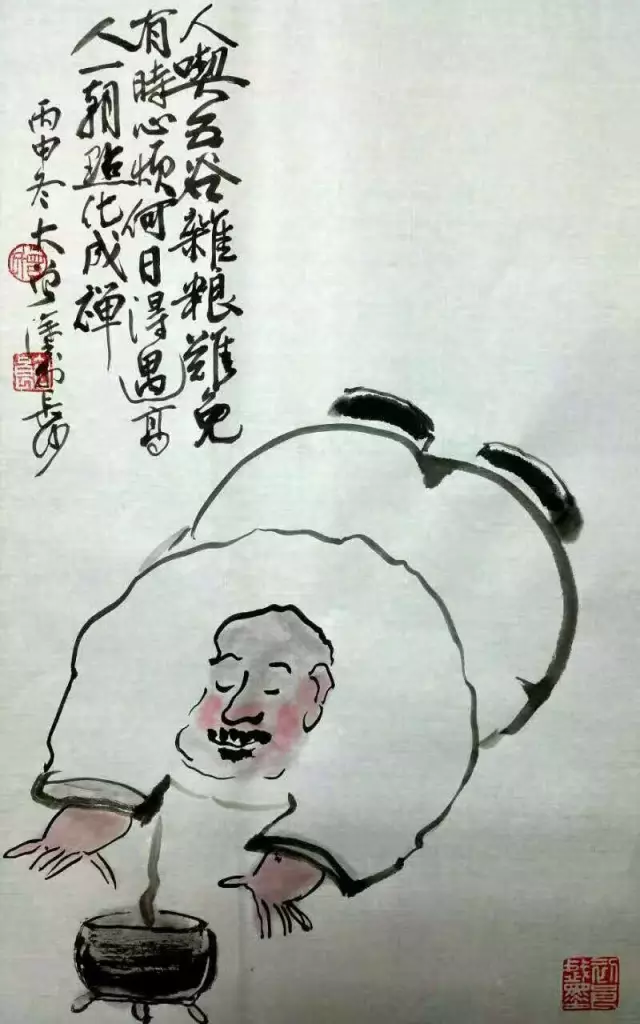 人喫五谷雜粮難免
有時心煩何日得遇高
人一朝點化成禅
丙申冬大